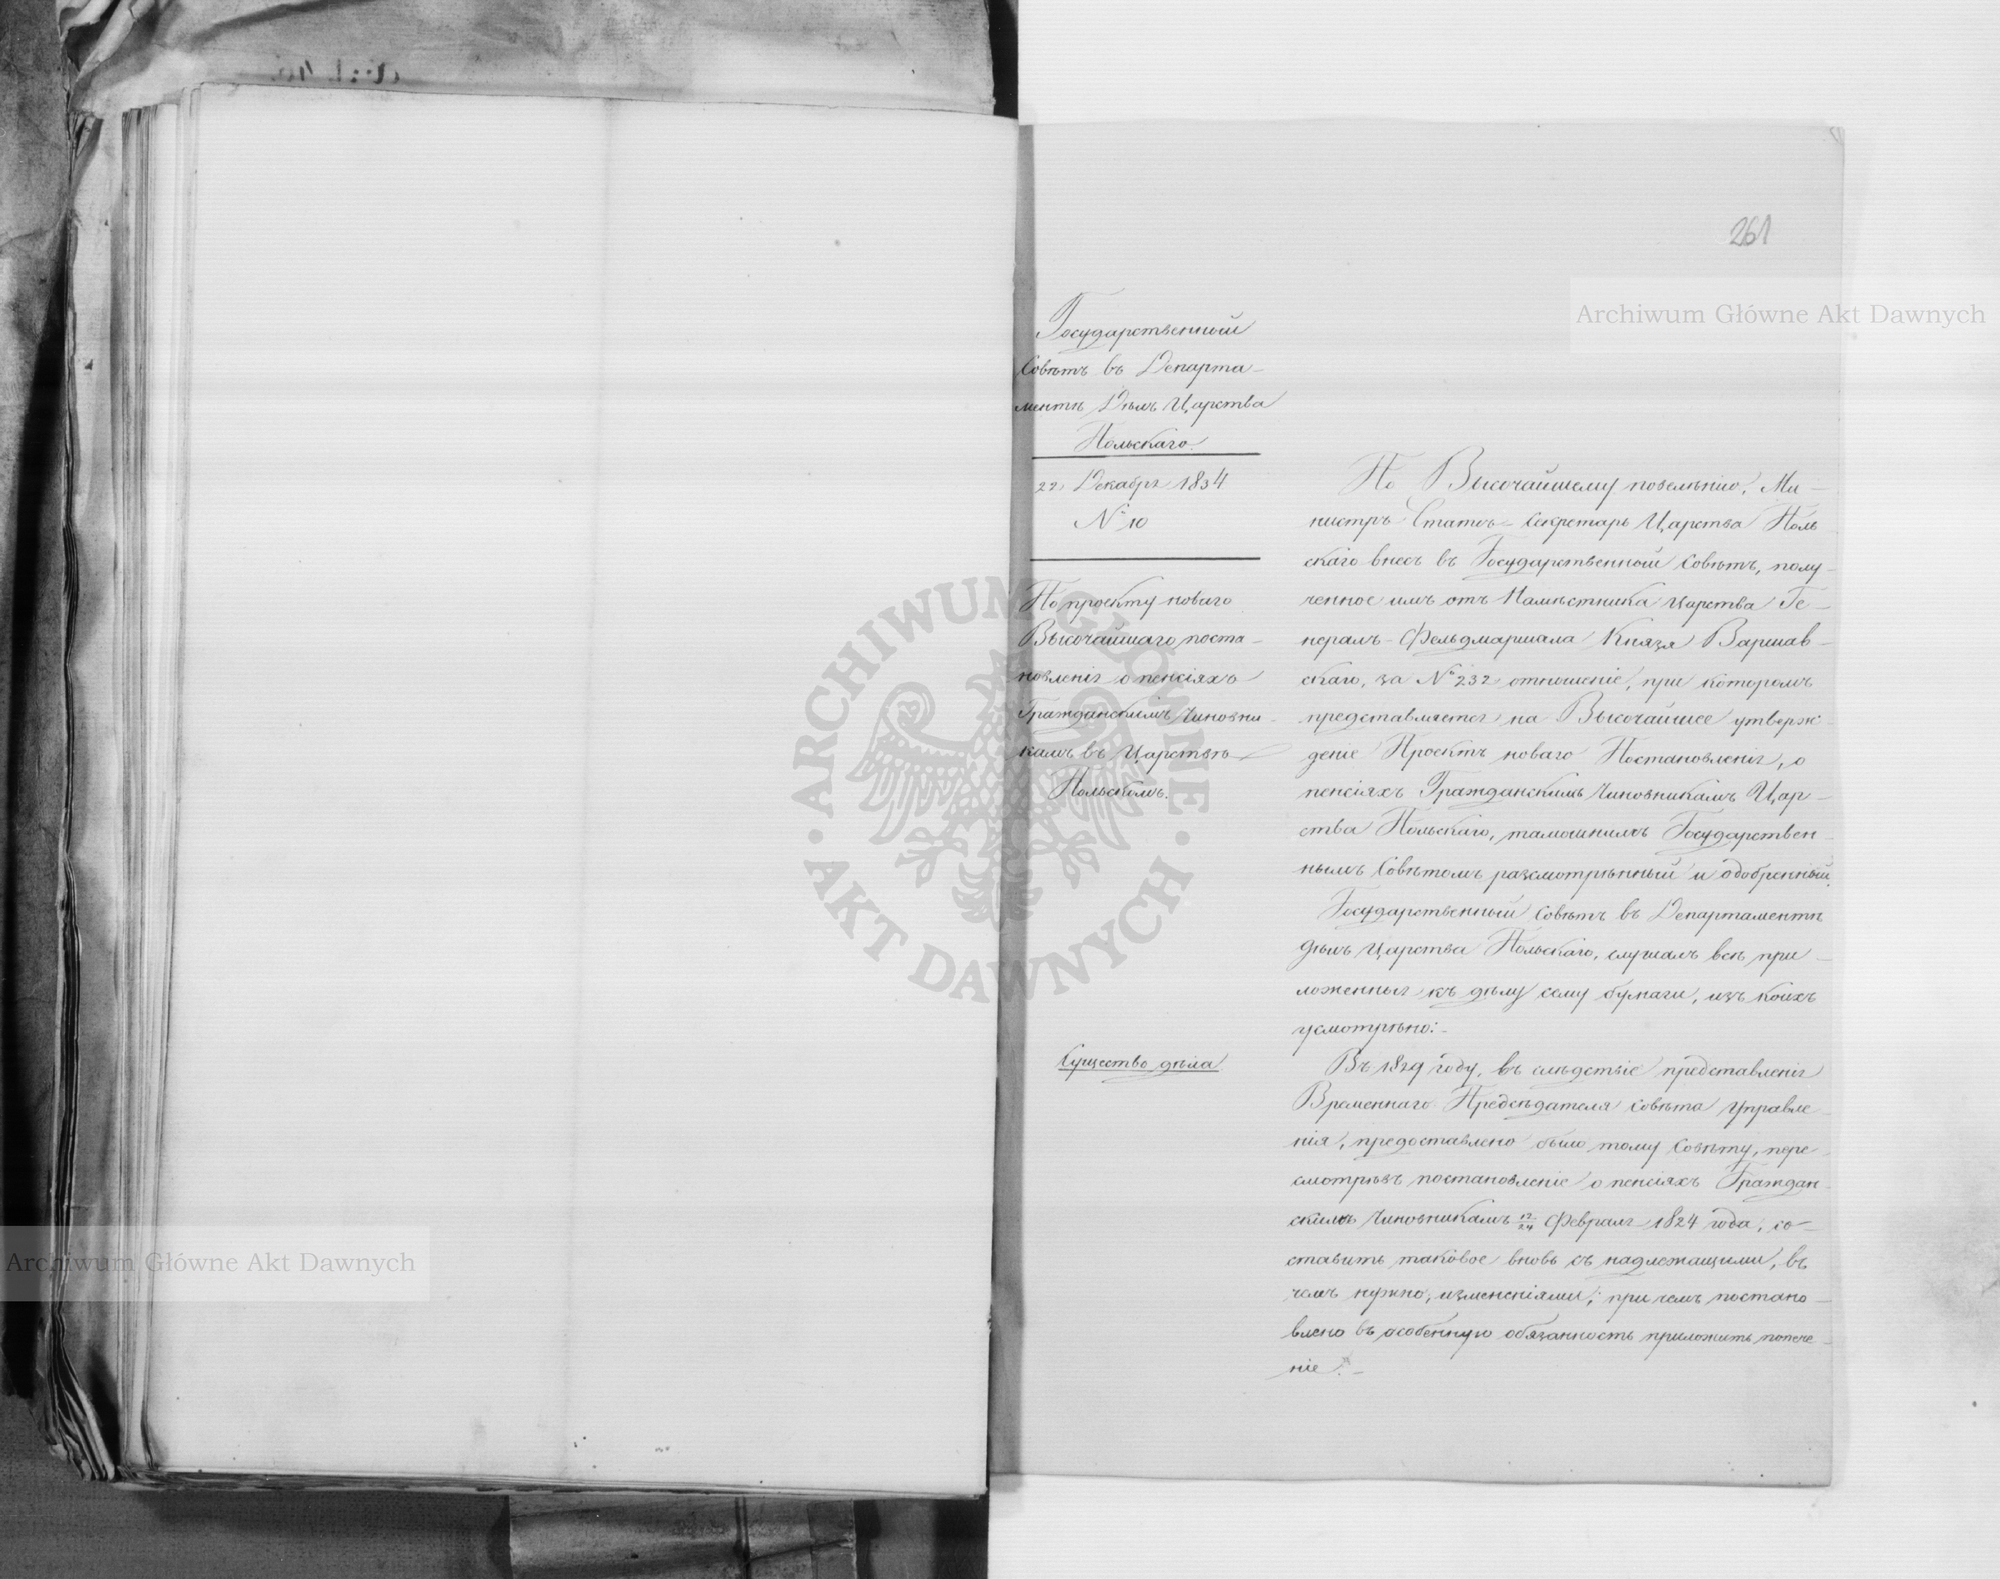 261
Государственный
Совѣтъ въ Департа-
ментѣ Дѣлъ Царства
Польскаго.
22 Декабря 1834
№ 10
По проекту новаго
Высочайшаго поста-
новленія о пенсіяхъ
Гражданскимъ Чиновни-
камъ въ Царствѣ
Польскомъ.
По Высочайшему повелѣнію, Ми-
нистръ Статсъ-Секретарь Царства Поль
скаго внесъ въ Государственный Совѣтъ, полу-
ченное имъ отъ Намѣстника Царства Ге-
нералъ-Фельдмаршала Князя Варшав-
скаго, за № 232 отношеніе, при которомъ
представляется на Высочайшее утверж-
деніе Проектъ новаго Постановленія, о
пенсіяхъ Гражданскимъ Чиновникамъ Цар-
ства Польскаго, тамошнимъ Государствен-
нымъ Совѣтомъ разсмотрѣнный и одобренный.
Государственный Совѣтъ въ Департаментѣ
дѣлъ Царства Польскаго, слушалъ всѣ при-
ложенныя къ дѣлу сему бумаги, изъ коихъ
усмотрѣно:-
Существо дѣла
Въ 1829 году, въ слѣдствіе представленія
Временнаго Предсѣдателя Совѣта Управле-
нія, предоставлено было тому Совѣту, пере-
смотрѣвъ постановленіе о пенсіяхъ Граждан-
скимъ Чиновникамъ 12/24 Февраля 1824 года, со-
ставить таковое вновь съ надлежащими, въ
чемъ нужно, измѣненіями; при чемъ постано-
влено въ особенную обязанность приложить попече-
ніе.-
Archiwum Główne Akt Dawnych
Archiwum Główne Akt Dawnych
ARCHIWUM GŁÓWNE · AKT DAWNYCH ·